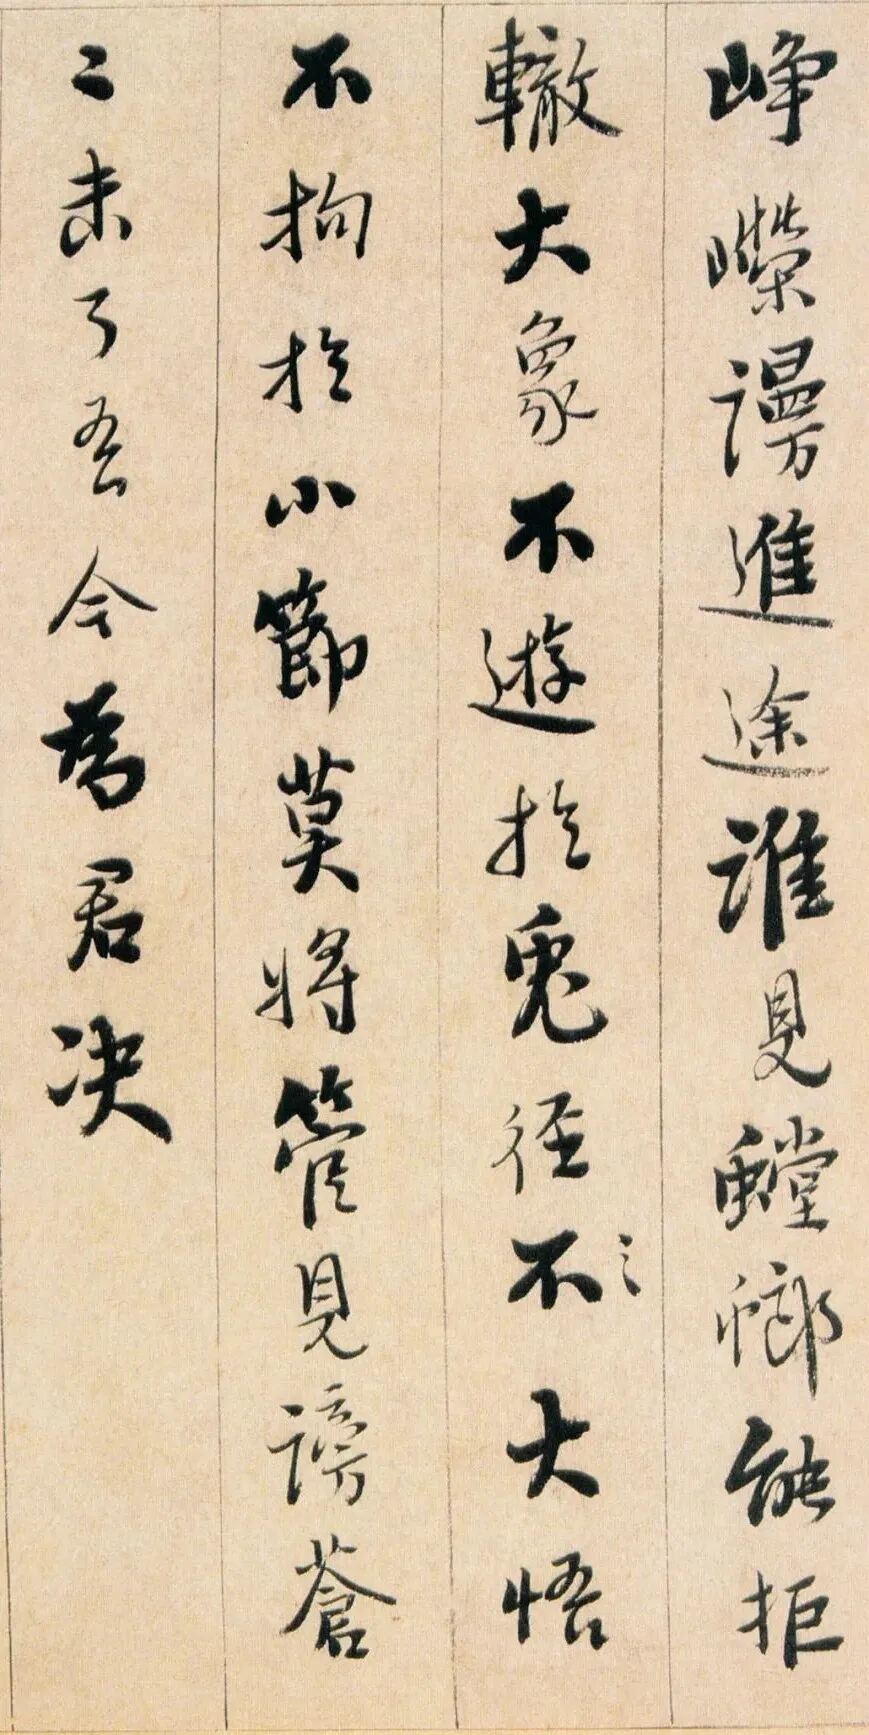 崢嶸謾進途誰見螳螂能拒
轍大象不遊於兔徑不大悟
不拘於小節莫將管見謗蒼
〻未了吾今為君決